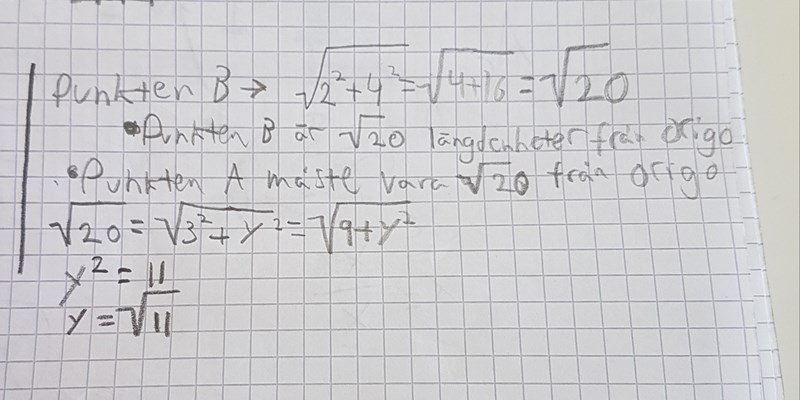 Punkten B → √2²+4² = √4+16 = √20
•Punkten B är √20 längdenheter från origo
•Punkten A måste vara √20 från origo
√20 = √3²+y² = √9+y²
y² = 11
y = √11